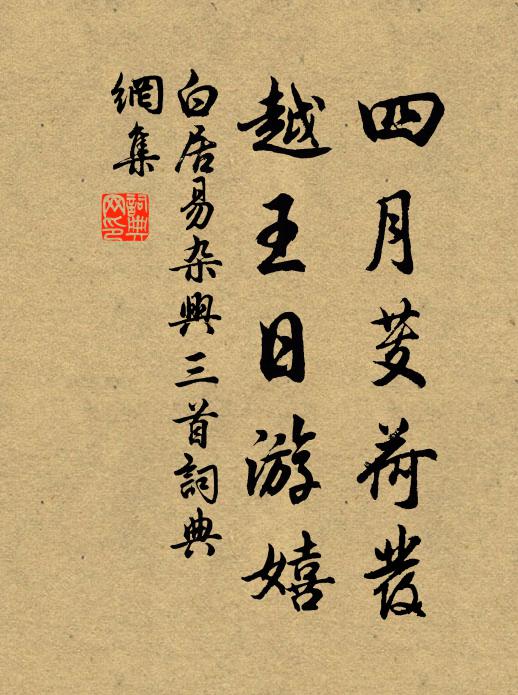 四月芰荷發
越王日游嬉
白居易杂興三首詞典
網集
詞典
网印